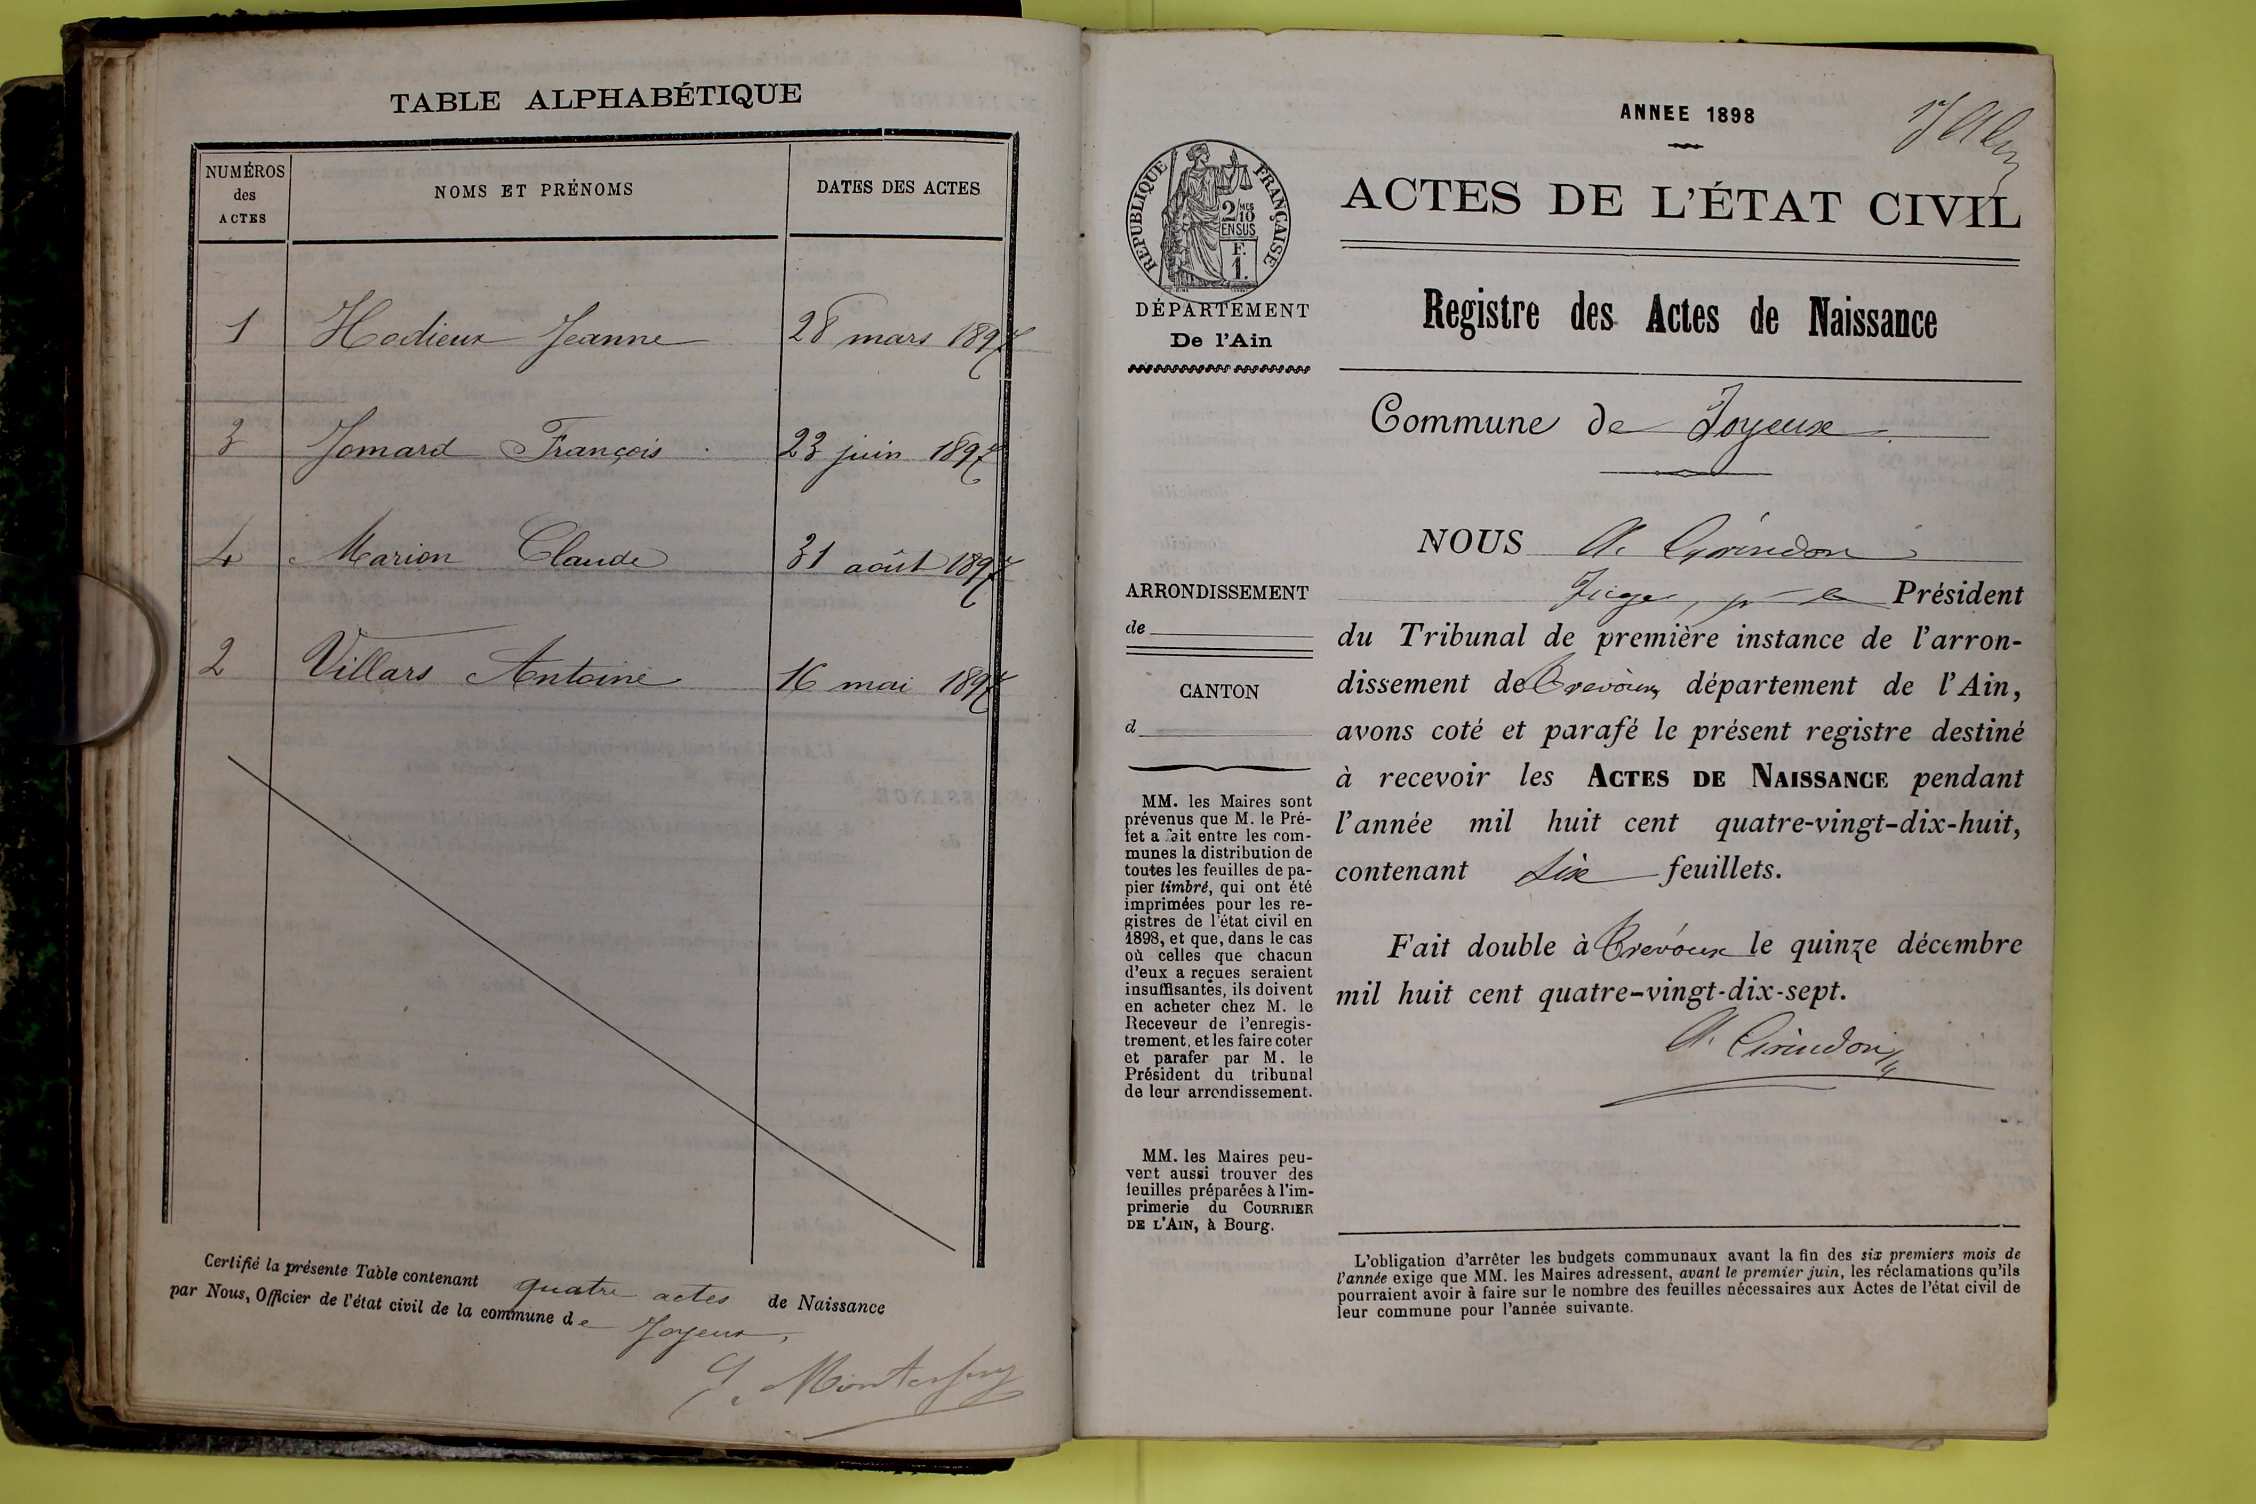 TABLE ALPHABÉTIQUE
NUMÉROS
des
ACTES
NOMS ET PRÉNOMS
DATES DES ACTES
1 Hodieux Jeanne 28 mars 1897
3 Jomard François 23 juin 1897
4 Marion Claude 31 août 1897
2 Villars Antoine 16 mai 1897
Certifié la présente Table contenant quatre actes de Naissance
par Nous, Officier de l'état civil de la commune de Joyeux,
ANNEE 1898
RÉPUBLIQUE FRANÇAISE
2/10 MES
EN SUS
F.
1.
DÉPARTEMENT
De l'Ain
ARRONDISSEMENT
de
CANTON
d
MM. les Maires sont
prévenus que M. le Pré-
fet a fait entre les com-
munes la distribution de
toutes les feuilles de pa-
pier timbré, qui ont été
imprimées pour les re-
gistres de l'état civil en
1898, et que, dans le cas
où celles que chacun
d'eux a reçues seraient
insuffisantes, ils doivent
en acheter chez M. le
Receveur de l'enregis-
trement, et les faire coter
et parafer par M. le
Président du tribunal
de leur arrondissement.
MM. les Maires peu-
vent aussi trouver des
feuilles préparées à l'im-
primerie du COURRIER
DE L'AIN, à Bourg.
ACTES DE L'ÉTAT CIVIL
Registre des Actes de Naissance
Commune de Joyeux
NOUS A. Girindon
Juge, pr le Président
du Tribunal de première instance de l'arron-
dissement de Trévoux, département de l'Ain,
avons coté et parafé le présent registre destiné
à recevoir les ACTES DE NAISSANCE pendant
l'année mil huit cent quatre-vingt-dix-huit,
contenant six feuillets.
Fait double à Trévoux le quinze décembre
mil huit cent quatre-vingt-dix-sept.
A. Girindon
L'obligation d'arrêter les budgets communaux avant la fin des six premiers mois de
l'année exige que MM. les Maires adressent, avant le premier juin, les réclamations qu'ils
pourraient avoir à faire sur le nombre des feuilles nécessaires aux Actes de l'état civil de
leur commune pour l'année suivante.